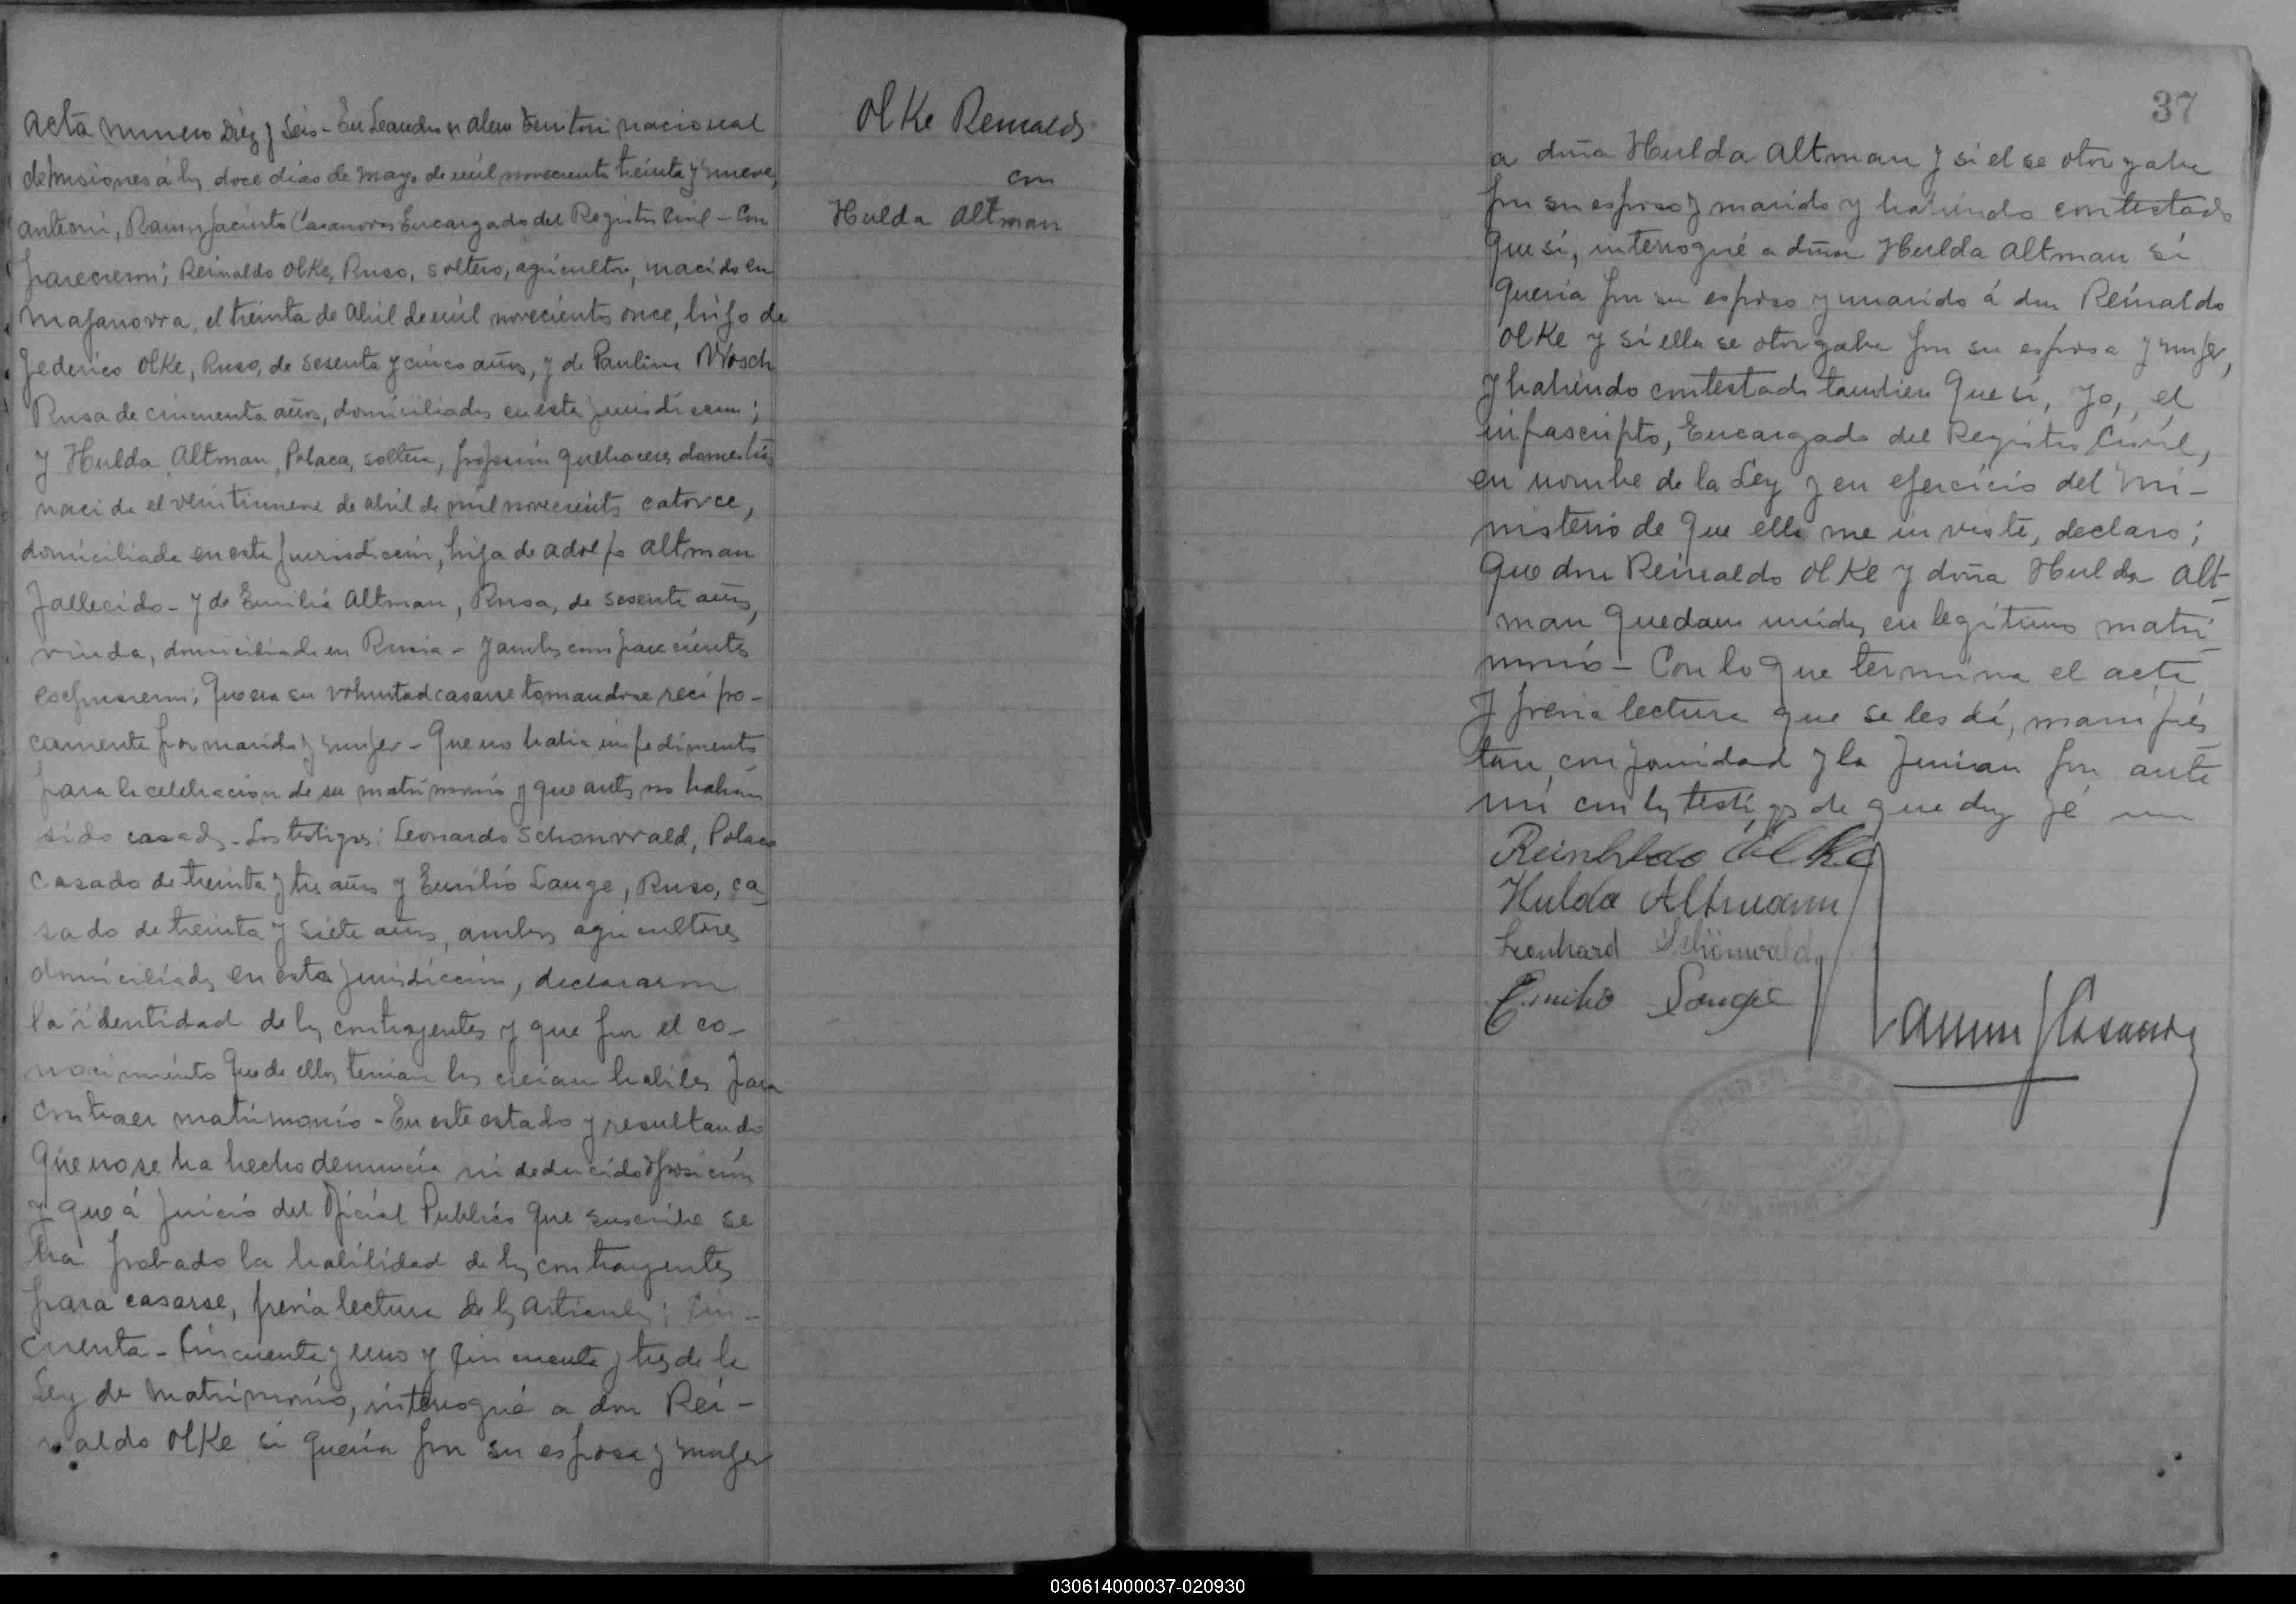 Acta numero Diez y Seis - En Leandro N Alem Territorio nacional
de Misiones á los doce dias de Mayo de mil novecientos treinta y nueve,
ante mi, Ramon Jacinto Casanovas Encargado del Registro Civil - Com
parecieron; Reinaldo Olke, Ruso, soltero, agricultor, nacido en
el treinta de Abril de mil novecientos once, hijo de
Federico Olke, Ruso, de sesenta y cinco años, y de Paulina Wosch
Rusa de cincuenta años, domiciliados en esta jurisdiccion;
y Hulda Altman, Polaca, soltera, profesión quehaceres domesticos
nacida el veintinueve de abril de mil novecientos catorce,
domiciliada en esta jurisdicción, hija de Adolfo Altman
fallecido - y de Emilia Altman, Rusa, de sesenta años,
viuda, domiciliada en Rusia - y ambos comparecientes
expusieron; Que era su voluntad casarse tomandose recipro-
camente por marido y mujer - Que no habia impedimento
para la celebracion de su matrimonio y que antes no habian
sido casados - Los testigos: Leonardo Schonwald, Polaco
casado de treinta y tres años y Emilio Lange, Ruso, ca
sado de treinta y siete años, ambos agricultores
domiciliados en esta jurisdiccion, declararon
la identidad de los contrayentes y que por el co-
nocimiento que de ellos tenian los creian habiles para
contraer matrimonio - En este estado y resultando
que no se ha hecho denuncia ni deducido oposición
y que á juicio del Oficial Publico que suscribe se
ha probado la habilidad de los contrayentes
para casarse, previa lectura de los Articulos; Cin-
cuenta - Cincuenta y uno y Cincuenta y tres de la
Ley de Matrimonio, interrogué a don Rei-
naldo Olke si queria por su esposa y mujer
Olke Reinaldo
con
Hulda Altman
37
a doña Hulda Altman y si el se otorgaba
por su esposo y marido y habiendo contestado
que sí, interrogué a doña Hulda Altman si
queria por su esposo y marido á don Reinaldo
Olke y si ella se otorgaba por su esposa y mujer,
y habiendo contestado tambien que si, yo, el
infrascripto, Encargado del Registro Civil,
en nombre de la Ley y en ejercicio del Mi-
nisterio de que ella me inviste, declaro;
Que don Reinaldo Olke y doña Hulda Alt-
man quedan unidos en legitimo matri-
monio - Con lo que termina el acta
y previa lectura que se les dá, manifies
tan conformidad y la firman por ante
mi con los testigos de que doy fé
Reinhldo Olke
Hulda Altmann
Leonhard Schönwald
Emilio Lange
Ramon J Casanovas
030614000037-020930